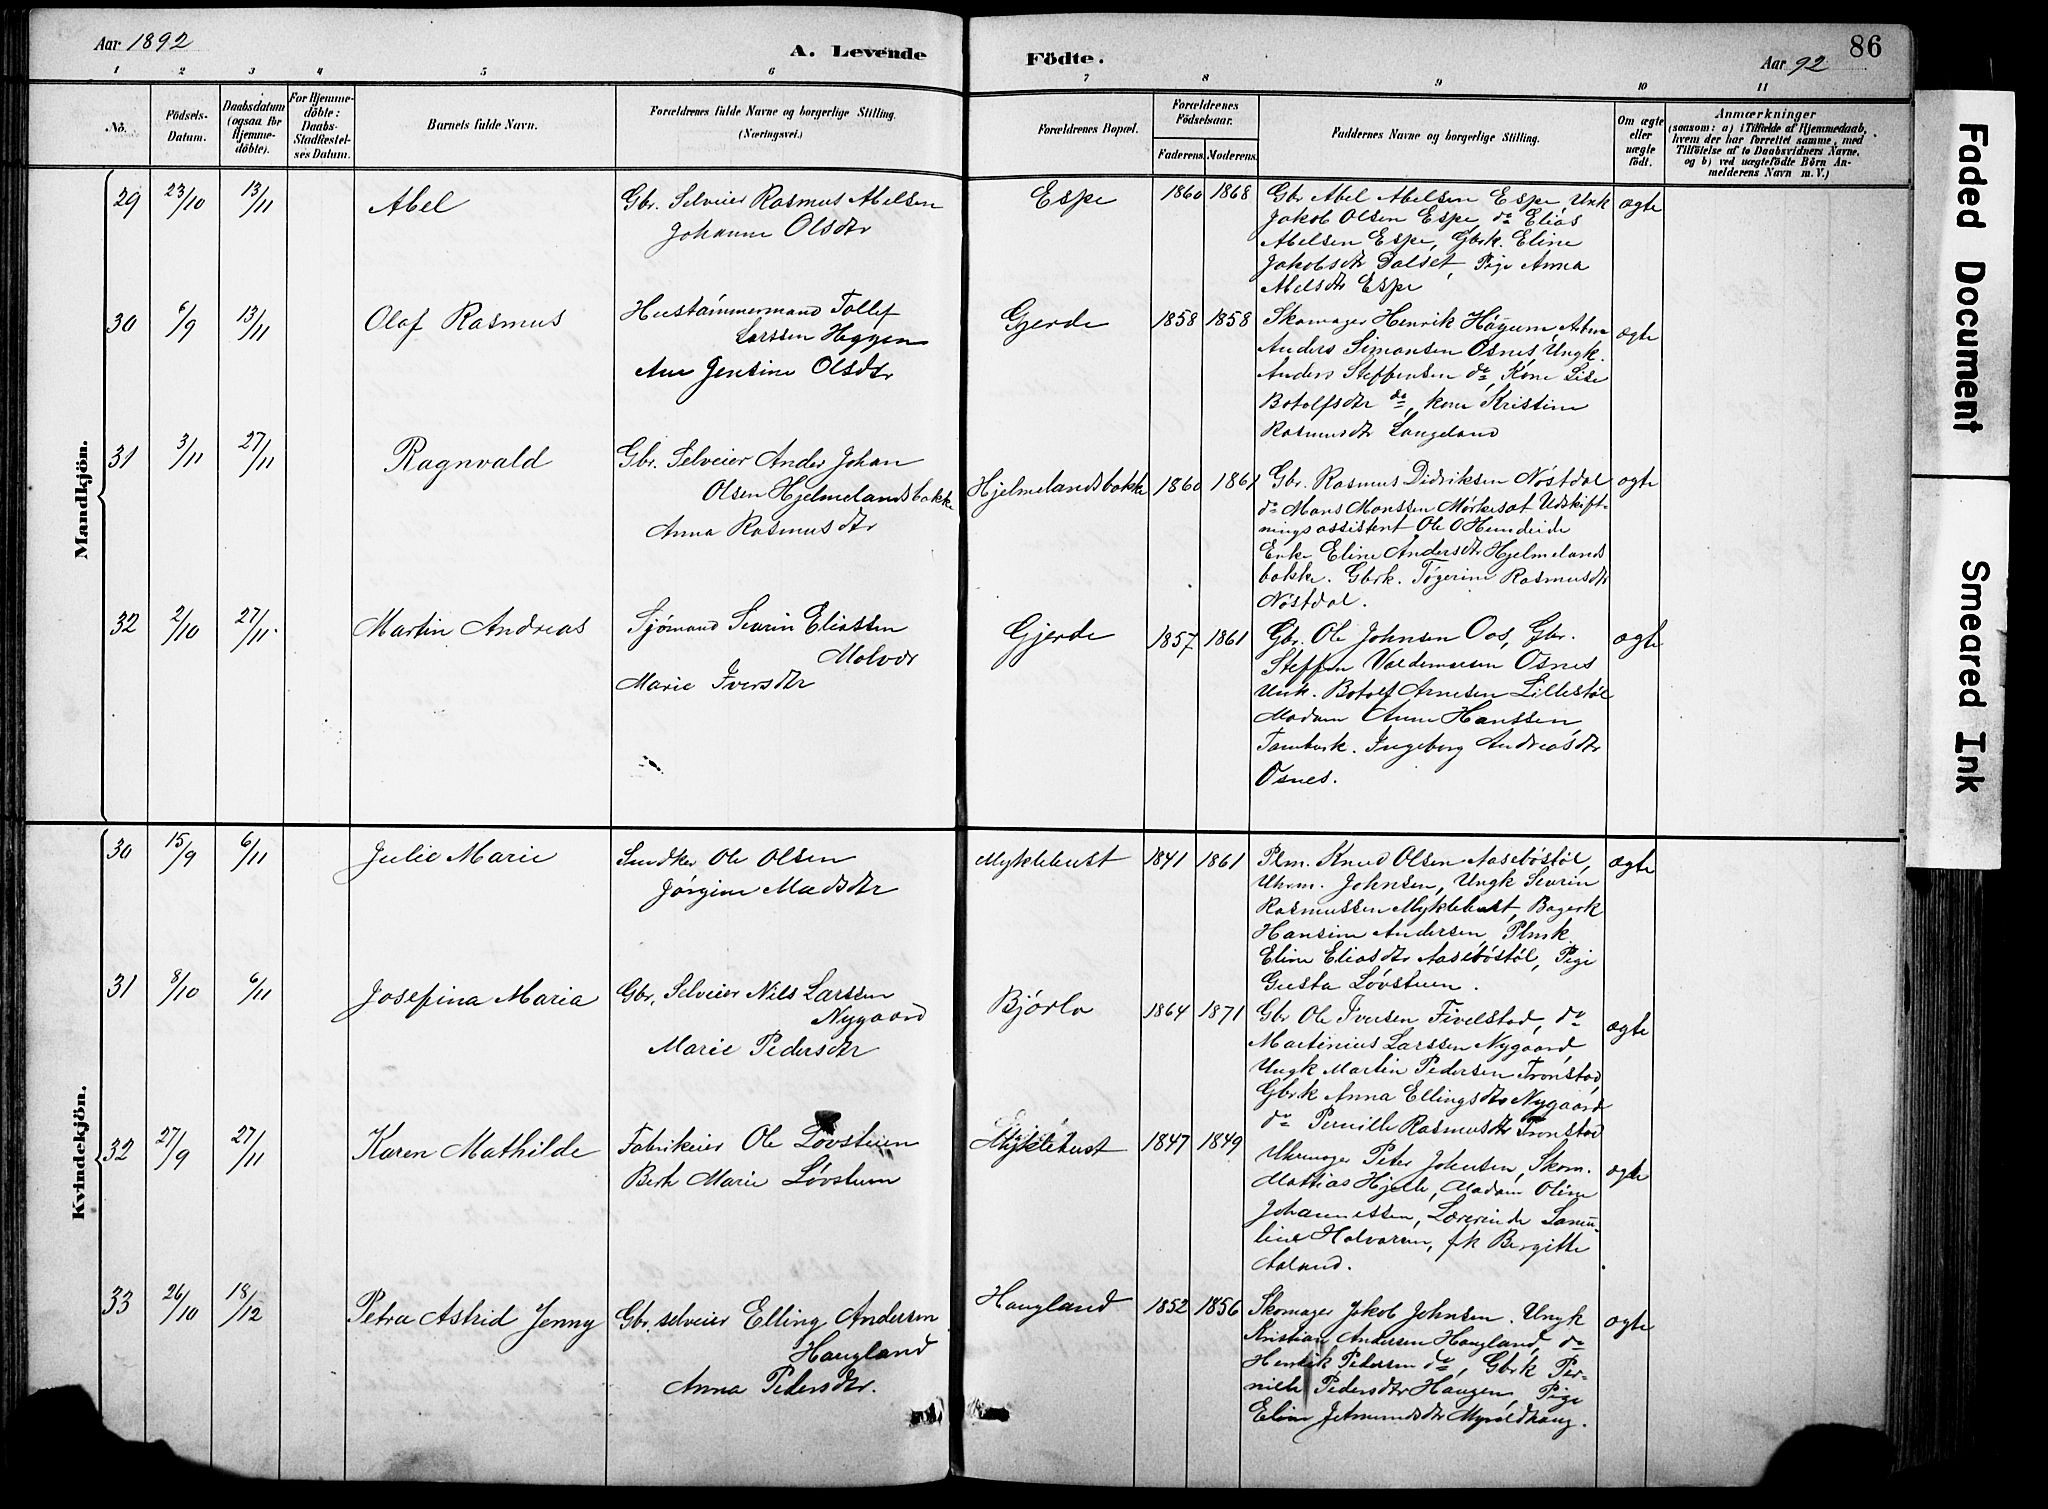 Aar 1892
A. Levende
Födte.
Aar 92
86
1 2 3 4 5 6 7 8 9 10 11
No.
Födsels-
Datum.
Daabsdatum
(ogsaa for
Hjemme-
döbte).
For Hjemme-
döbte:
Daabs-
Stadfæstel-
ses Datum.
Barnets fulde Navn.
Forældrenes fulde Navne og borgerlige Stilling.
(Næringsvei.)
Forældrenes Bopæl.
Forældrenes
Födselsaar.
Faderens. Moderens.
Faddernes Navne og borgerlige Stilling.
Om ægte
eller
uægte
födt.
Anmærkninger
(saasom: a) i Tilfælde af Hjemmedaab,
hvem der har forrettet samme, med
Tilföielse af to Daabsvidners Navne,
og b) ved uægtefödte Börn An-
melderens Navn m. V.)
Mandkjön.
29 23/10 13/11 Abel
Gbr. Selveier Rasmus Abelsen
Johanne Olsdtr
Espe 1860 1868
Gbr Abel Abelsen Espe, Unk
Jakob Olsen Espe, do Elias
Abelsen Espe, Gbrk. Eline
Jakobsdtr Dalset, Pige Anna
Abelsdtr Espe
ægte
30 6/9 13/11 Olaf Rasmus
Hustømmermand Tollef
Larssen Heggen
Ane Jensine Olsdtr
Gjerde 1858 1858
Skomager Henrik Høyum, Arbm
Anders Simonsen Osnes, Ungk.
Anders Steffensen do, Kone Lise
Botolfsdtr do, kone Kristine
Rasmusdtr Langeland
ægte
31 3/11 27/11 Ragnvald
Gbr. Selveier Ander Johan
Olsen Hjelmelandsbakke
Anna Rasmusdtr
Hjelmelandsbakke 1860 1861
Gbr. Rasmus Didriksen Nøstdal
do Mons Monssen Mørkesat Udskift-
ningsassistent Ole O Hundeide
Enke Eline Andersdtr Hjelmelands
bakke. Gbrk. Tøgerine Rasmusdtr
Nøstdal.
ægte
32 2/10 27/11 Martin Andreas
Sjømand Severin Eliassen
Molvær
Marie Iversdtr
Gjerde 1857 1861
Gbr. Ole Johnsen Oos, Gbr.
Steffen Valdemarsen Osnes
Unk. Botolf Arnesen Lillestøl
Madam Anne Hanssen
Ingeborg Andreasdtr
Osnes.
ægte
Kvindekjön.
30 15/9 6/11 Julie Marie
Ole Olsen
Jørgine Madsdtr
Myklebust 1841 1861
Plm. Knud Olsen Aasebøstøl,
Uhrm. Johnsen, Ungk Severin
Rasmussen Myklebust, Bagerk
Hansine Andersen, Plmk
Eline Eliasdtr Aasebøstøl, Pige
Gusta Løvstuen.
ægte
31 8/10 6/11 Josefina Maria
Gbr. Selveier Nils Larssen
Nygaard
Marie Pedersdtr
Bjørlo 1864 1871
Gbr Ole Iversen Fivelstad, do
Martinius Larssen Nygaard,
Ungk Martin Pedersen Tronstad,
Gbrk Anna Ellingsdtr Nygaard
do Pernille Rasmusdtr Tronstad
ægte
32 27/9 27/11 Karen Mathilde
Fabrikeier Ole Løvstuen
Berte Marie Løvstuen
Myklebust 1847 1849
Uhrmager Peter Johnsen, Skom.
Mattias Hjelle, Madam Oline
Johannessen, Lærerinde Samu-
line Halvorsen, fk Bergitte
Aaland.
ægte
33 26/10 18/12 Petra Astrid Jenny
Gbr. selveier Elling Andersen
Haugland
Anna Pedersdtr.
Haugland 1852 1856
Skomager Jakob Johnsen. Ungk
Kristian Andersen Haugland, do
Henrik Pedersen do, Gbrk Per-
nille Pedersdtr Haugen, Pige
Eline Jetmundsdtr Myroldhaug.
ægte
Faded Document
Smeared Ink